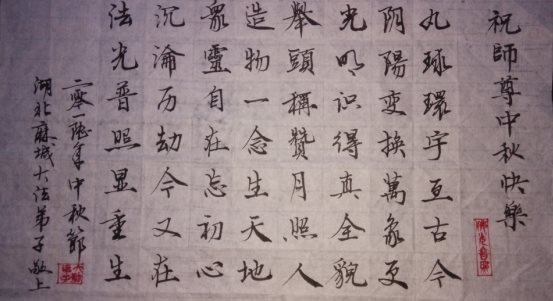 祝師尊中秋快樂
丸球環宇亙古今
阴陽变换萬象更
光明识得真全貌
舉頭稱赞月照人
造物一念生天地
眾靈自在忘初心
沉淪历劫今又在
法光普照显重生
二零一陸年中秋節
湖北麻城大法弟子敬上